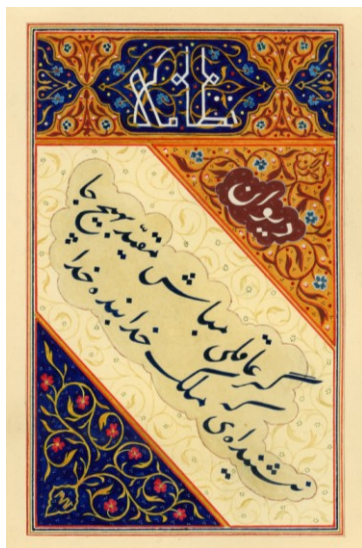 دیوان
گر عاقلی مباش مقید بهیچ جا
نشنیده‌ای ملک خدا بنده خدا